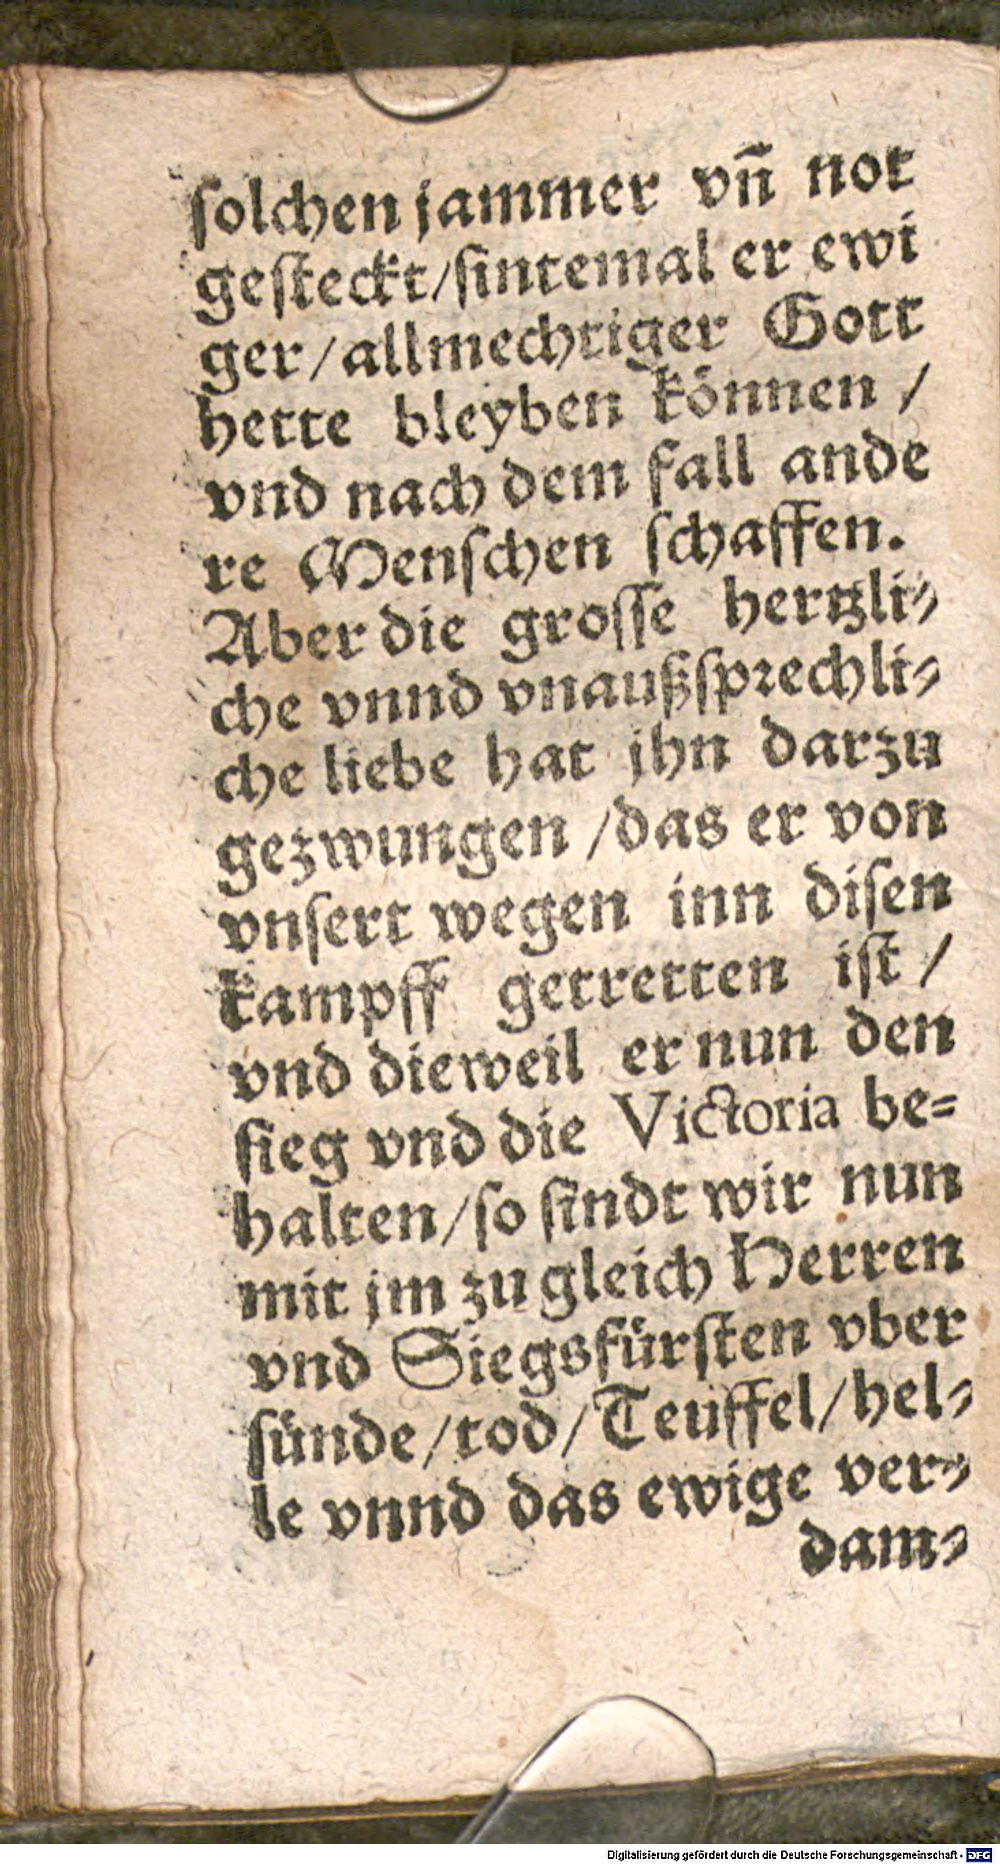 ſolchen jammer vñ not
geſteckt/ſintemal er ewi
ger/allmechtiger Gott
hette bleyben können /
vnd nach dem fall ande
re Menſchen ſchaffen.
Aber die groſſe hertzli⸗
che vnnd vnaußſprechli⸗
che liebe hat jhn darzu
gezwungen /das er von
vnſert wegen inn diſen
kampff getretten iſt /
vnd dieweil er nun den
ſieg vnd die Victoria be⸗
halten/ſo ſindt wir nun
mit jm zu gleich Herren
vnd Siegsfürſten vber
ſünde/tod/Teuffel/hel⸗
le vnnd das ewige ver⸗
dam⸗
Digitalisierung gefördert durch die Deutsche Forschungsgemeinschaft - DFG